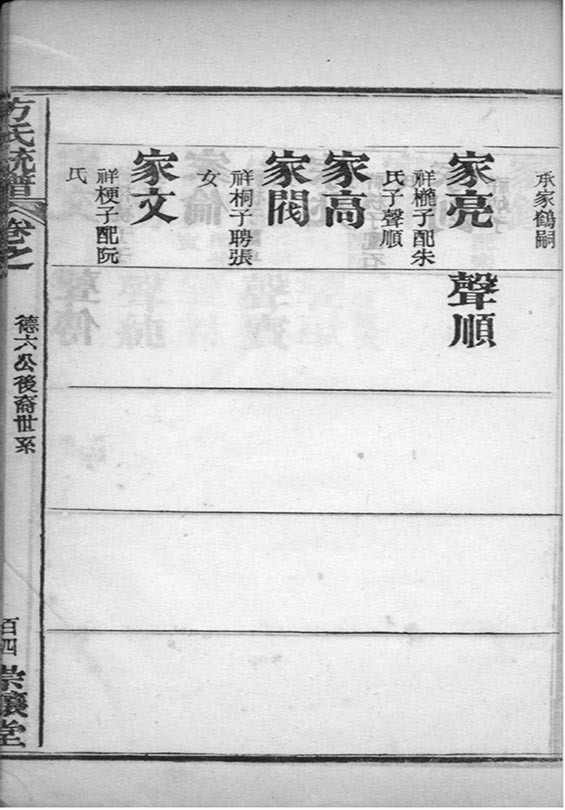 承家鶴嗣
家亮
祥樾子配朱
氏子聲順
聲順
家高
家閥
祥桐子聘張
女
家文
祥梗子配阮
氏
方氏統譜
卷之一
德六公後裔世系
百四
崇讓堂